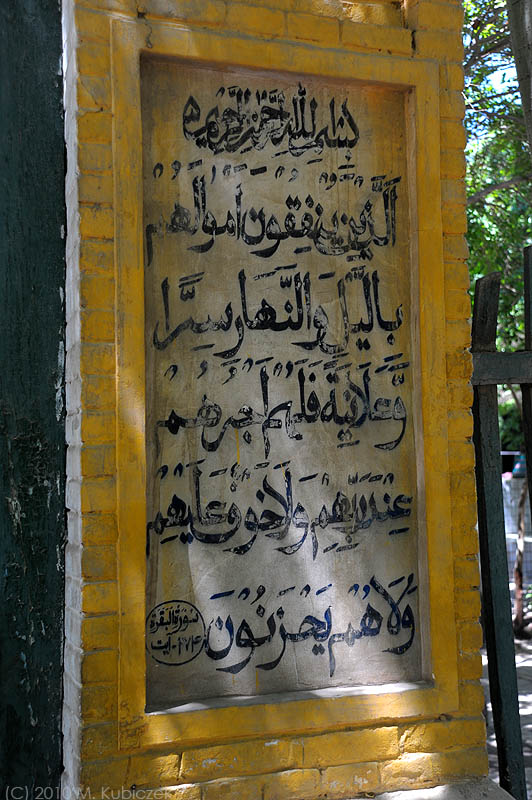 بسم الله الرحمن الرحيم
اَلَّذِيْنَ يُنْفِقُوْنَ اَمْوَالَهُمْ
بِالَّيْلِ وَالنَّهَارِ سِرًّا
وَّعَلَانِيَةً فَلَهُمْ اَجْرُهُمْ
عِنْدَ رَبِّهِمْ وَلَا خَوْفٌ عَلَيْهِمْ
وَلَا هُمْ يَحْزَنُوْنَ
سورة البقرة
۲۷۴-آيت
(C) 2010 M. Kubiczek